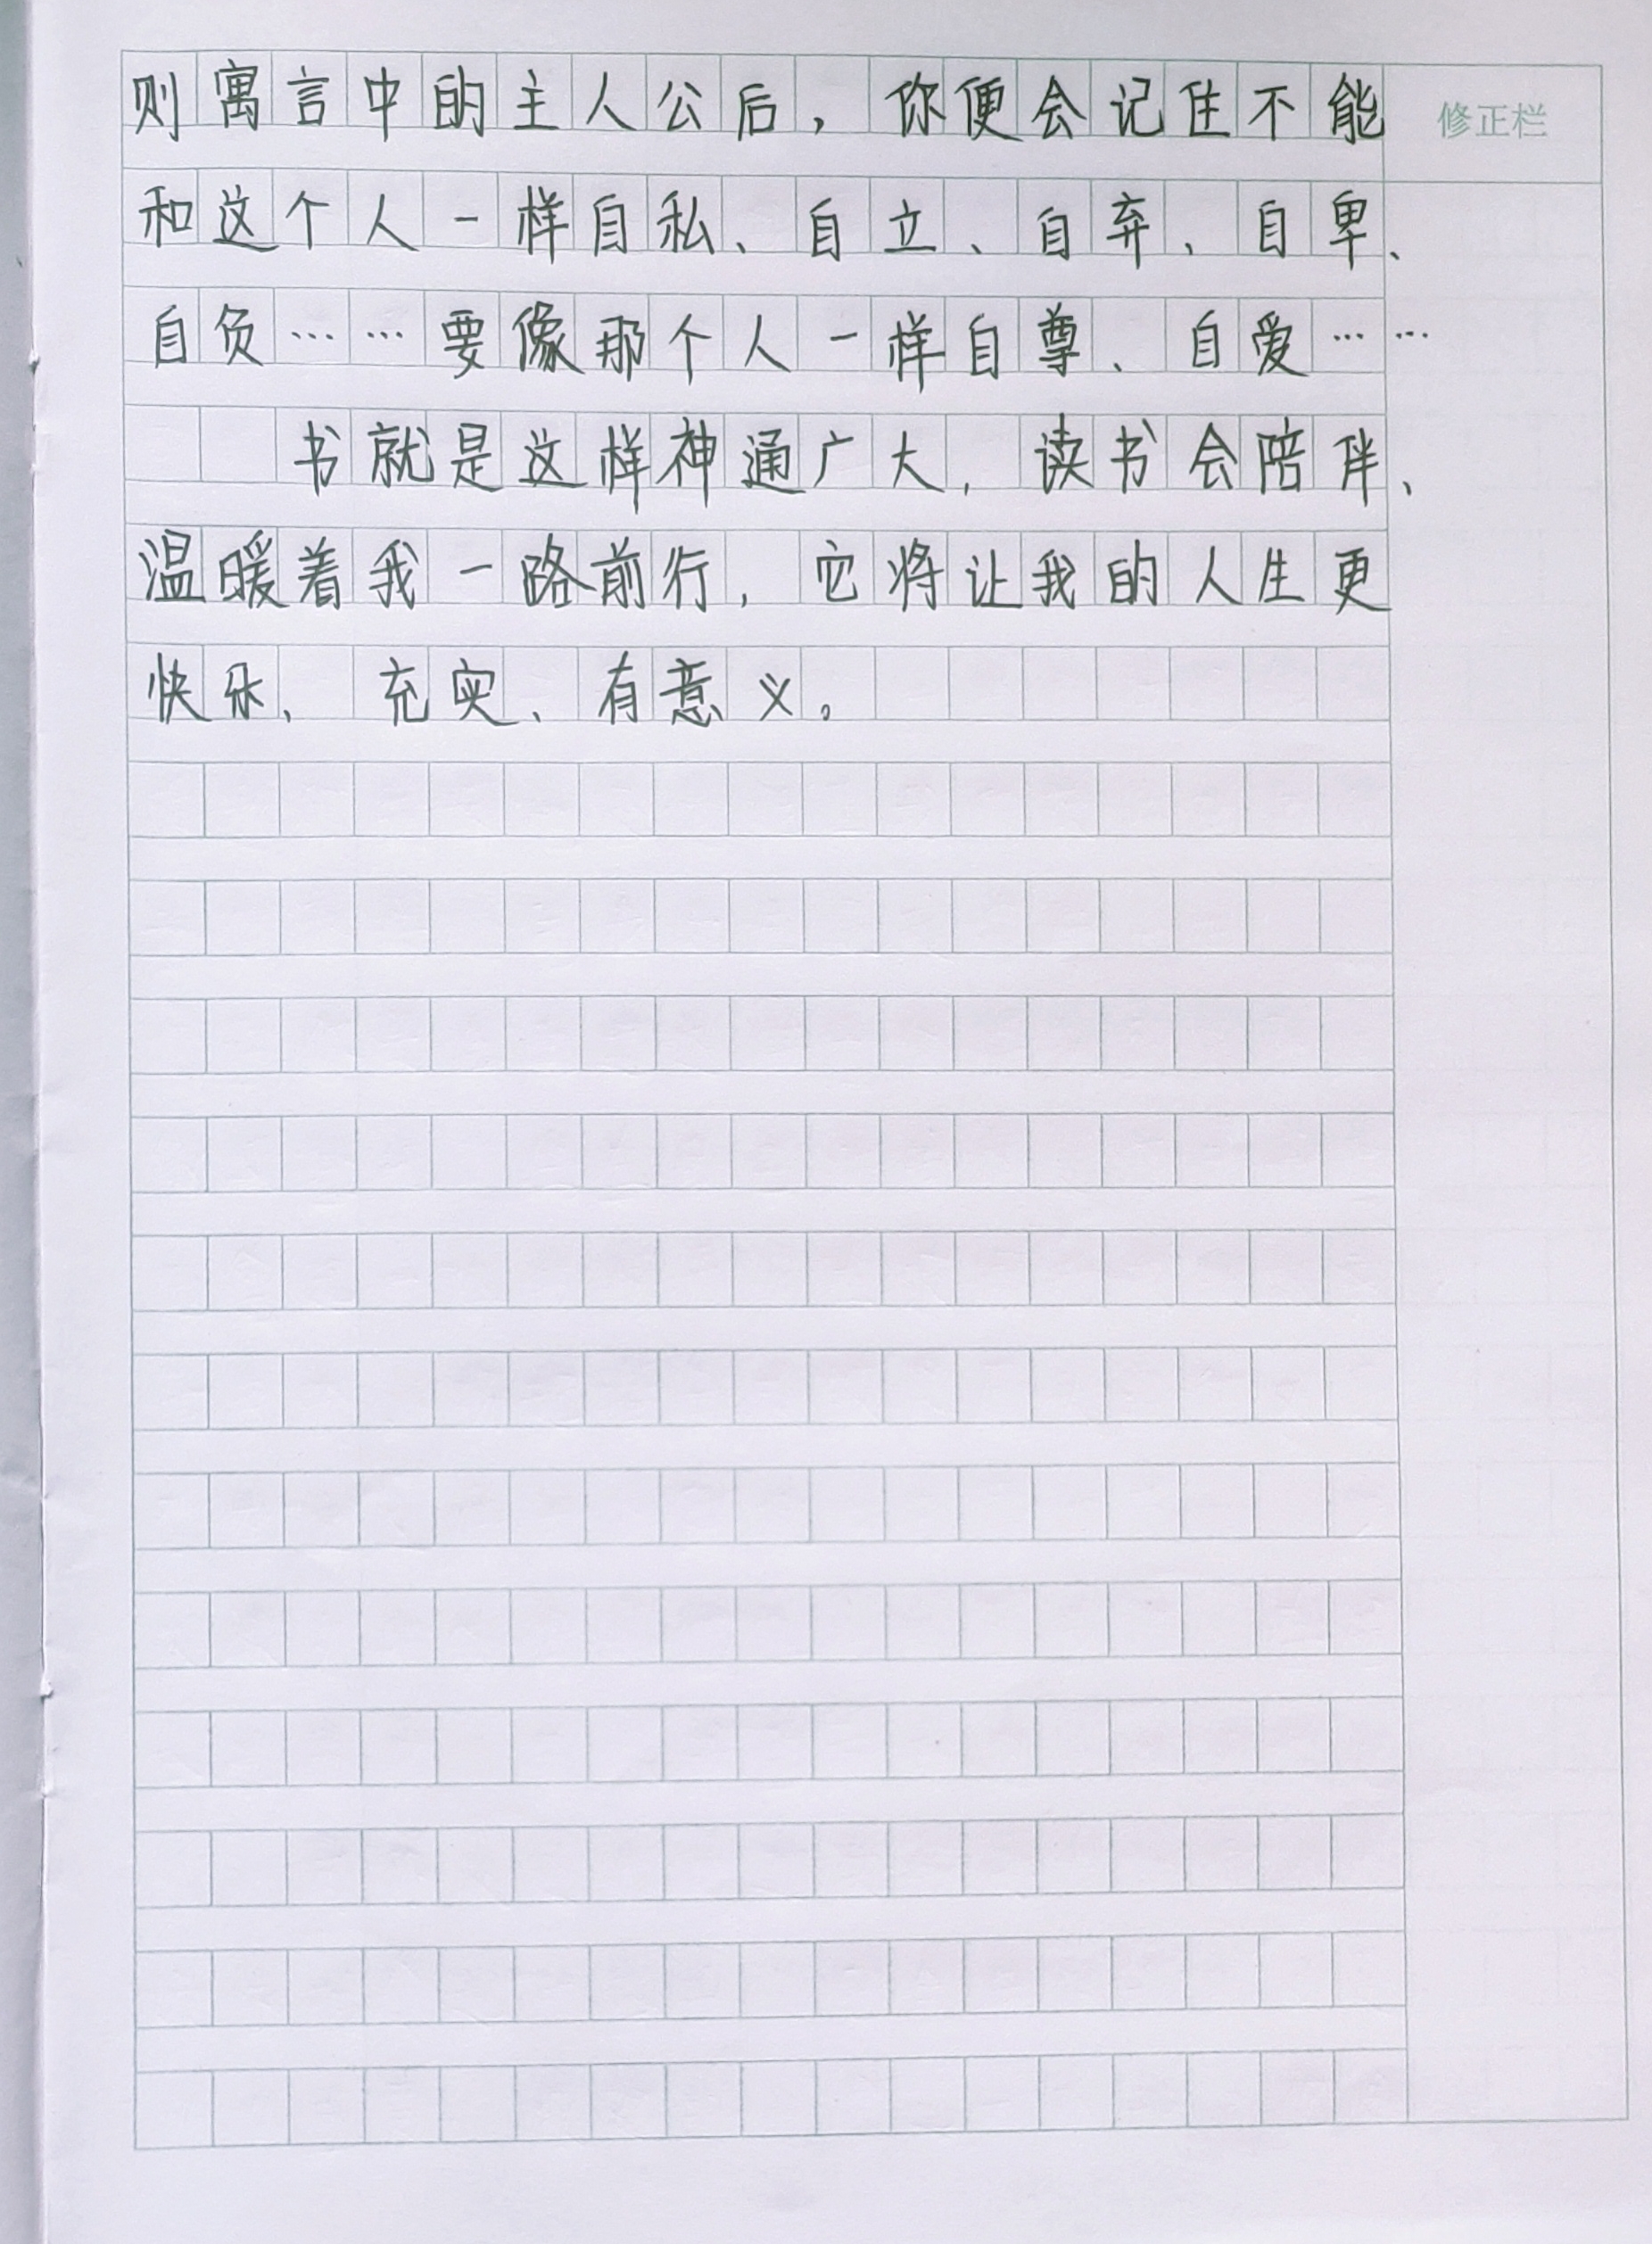 则寓言中的主人公后，你便会记住不能
修正栏
和这个人一样自私、自立、自弃、自卑、
自负……要像那个人一样自尊、自爱……
书就是这样神通广大，读书会陪伴、
温暖着我一路前行，它将让我的人生更
快乐、充实、有意义。